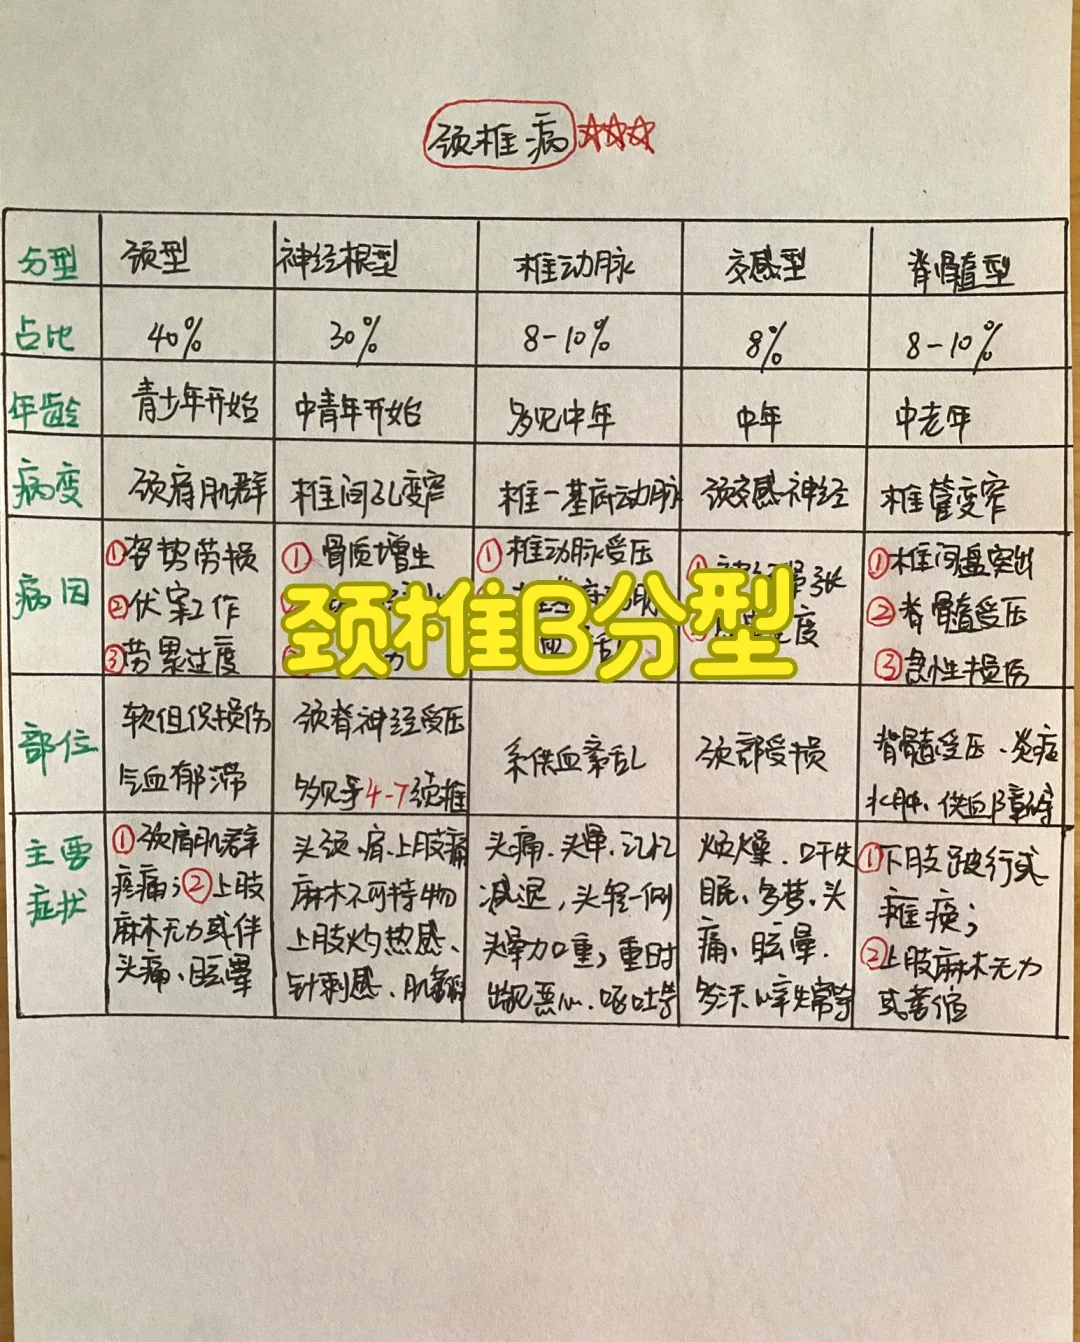 颈椎病☆☆☆
分型 颈型 神经根型 椎动脉 交感型 脊髓型
占比 40% 30% 8-10% 8% 8-10%
年龄 青少年开始 中青年开始 多见中年 中年 中老年
病变 颈肩肌群 椎间孔变窄 椎-基底动脉 颈交感神经 椎管变窄
病因
①姿势劳损
②伏案工作
③劳累过度
①骨质增生
①椎动脉受压
①张
度
①椎间盘突出
②脊髓受压
③急性损伤
颈椎B分型
部位
软组织损伤
气血郁滞
颈脊神经受压
多见于4-7颈椎
系供血紊乱
颈部受损
脊髓受压、炎症
水肿、供血障碍
主要
症状
①颈肩肌群
疼痛;②上肢
麻木无力或伴
头痛、眩晕
头、颈、肩、上肢痛
麻木不可持物
上肢灼热感、
针刺感、肌
头痛、头晕、记忆
减退,头轻一侧
头晕加重;重时
出现恶心、呕吐等
烦燥、失
眠、多梦、头
痛、眩晕、
多汗、失常等
①下肢跛行或
瘫痪;
②上肢麻木无力
或萎缩